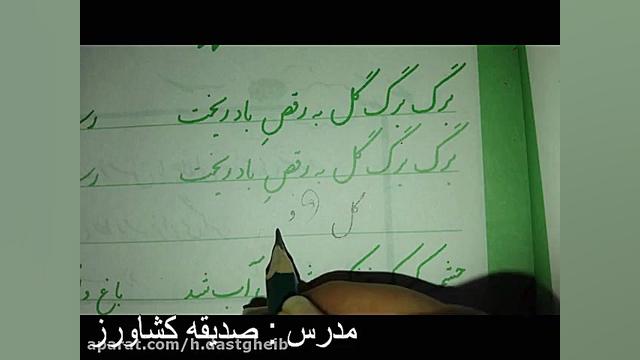 برگ برگ گل به رقصِ باد ریخت
برگ برگ گل به رقصِ باد ریخت
گل و
آب شد
باغ
مدرس : صدیقه کشاورز
aparat.com/h.dastgheib